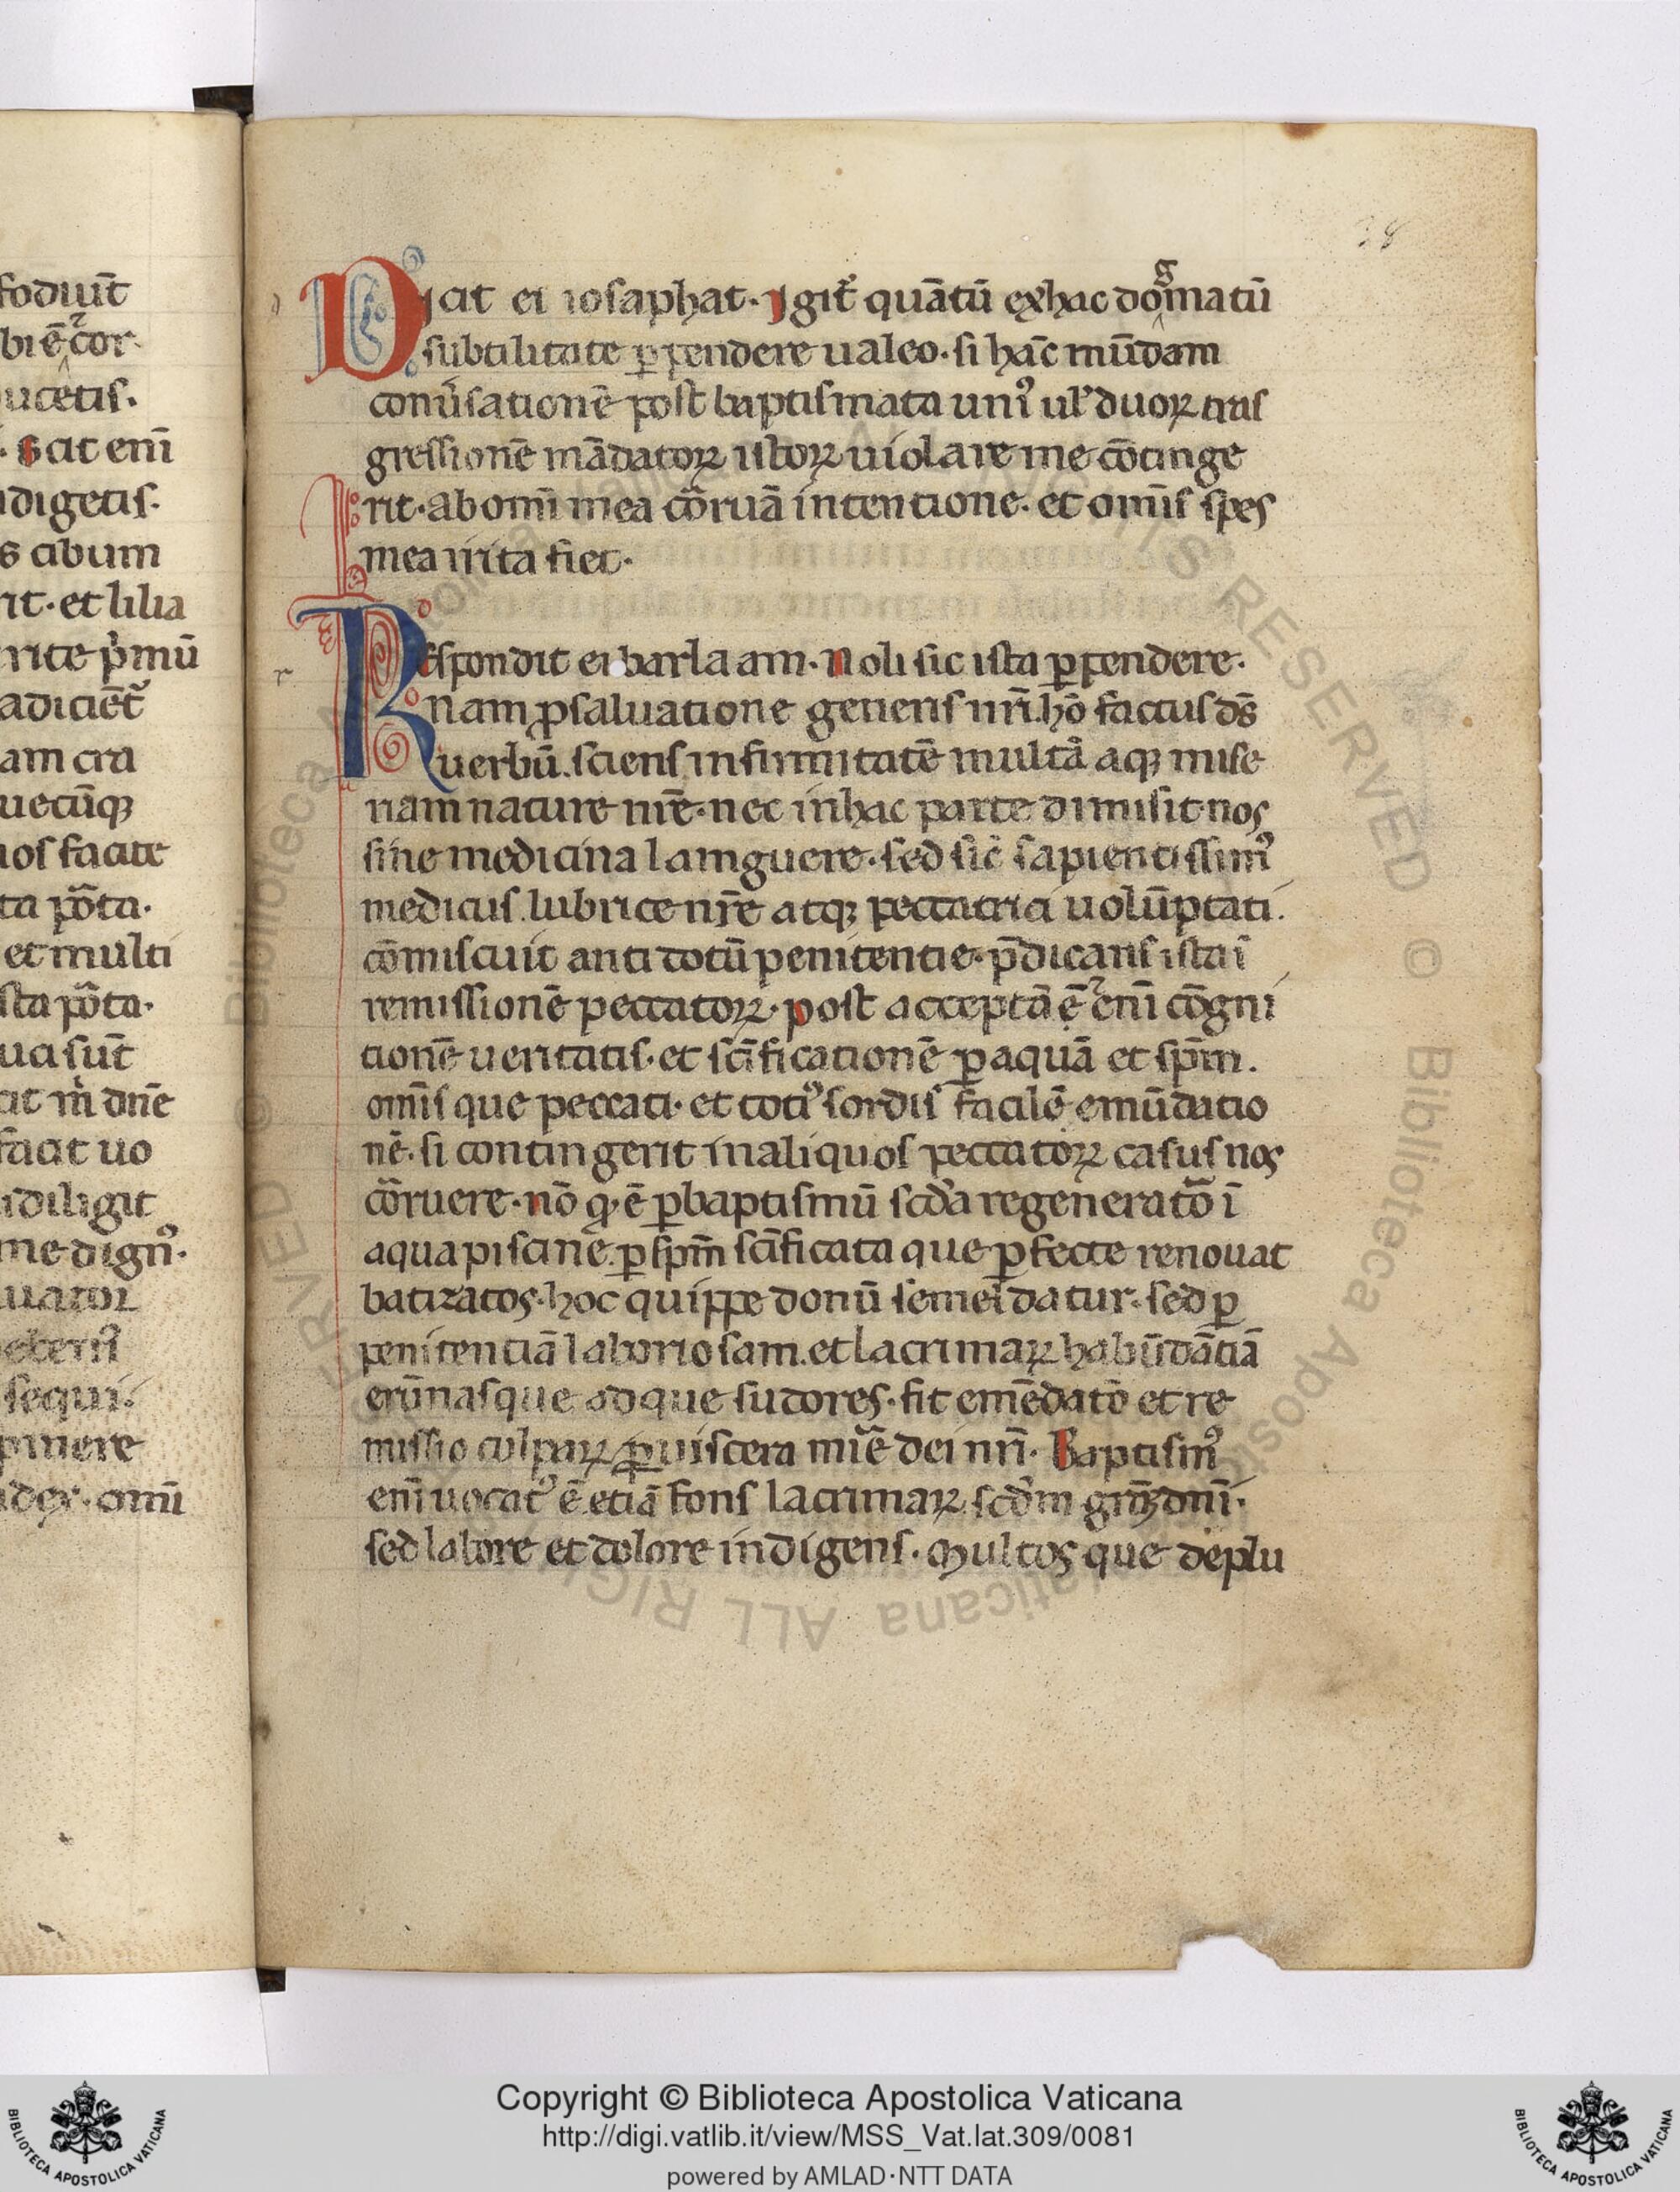 fodiut̄
bi ē ᷣcor
ucetis.
. Scit eni̅
ndigetis.
s cibum
rit. et lilia
rite p̍mū
adiciēt᷑
am cra
uecūqꝫ
nos facite
ta pōta.
et multi
sta pōta.
uci su̅t
cit m̍ dn̄e
facit uo
idiligit
me dignꝰ.
uator
eternꝰ
sequi.
pinere
dex. omi̅
38
Dicit ei iosaphat. Igit᷑ quātū exhac dogmatū
subtilitate ꝑpendere ualeo. si hāc mūdam
conu̍sationē post baptismata unꝰ ul̍ duoꝝ trās
gressionē mādatoꝝ istoꝝ uiolare me cōtinge
rit. ab omi̅ mea cōruā intentione. et omi̅s spes
mea irrita fiet.
Respondit ei barlaam. Noli sic ista ꝑpendere.
nam ꝓsaluatione generis nr̄i. hō factus ds̄
uerbū. sciens infirmitatē multā aqꝫ mise
riam nature nr̄e. nec inhac parte dimisit nos
sine medicina lamguere. sed sic̍ sapientissimꝰ
medicus. lubrice nr̄e atqꝫ peccatrici uolūptati.
cōmiscuit anti totū penitentie. p̄dicans ista ī
remissionē peccatoꝝ. Post acceptā ē ᷣ eni̅ cōgni
tionē ueritatis. et sc̄ificationē ꝑ aquā et sp̄m.
omi̅s que peccati. et totiꝰ sordis facilē emūdatio
nē. si contingerit inaliquos peccatoꝝ casus nos
cōruere. Nō q̧ ē ꝑbaptismū scd̍a regeneratō ī
aqua piscine. ꝑ sp̄m sc̄ificata que ꝑfecte renouat
batizatos. hoc quippe donū semel datur. sed ꝑ
penitentiā laboriosam. et lacrimaꝝ habūdātiā
erūnasque adque sudores. fit emēdatō et re
missio culpaꝝ ꝑ uiscera mi̅e dei nr̄i. Baptismꝰ
eni̅ uocatꝰ ē etiā fons lacrimaꝝ scd̍m gr̄ꝫ dn̄i.
sed labore et dolore indigens. Multos que deplu
Copyright © Biblioteca Apostolica Vaticana
http://digi.vatlib.it/view/MSS_Vat.lat.309/0081
powered by AMLAD·NTT DATA
BIBLIOTECA APOSTOLICA VATICANA
BIBLIOTECA APOSTOLICA VATICANA